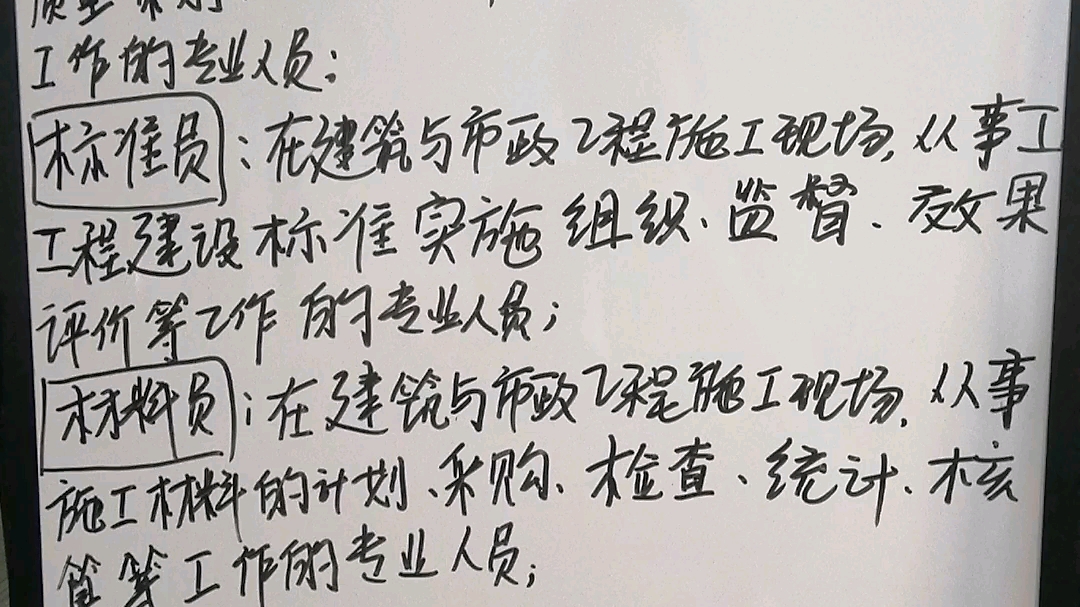 工作的专业人员;
标准员:在建筑与市政工程施工现场,从事工
工程建设标准实施组织、监督、效果
评价等工作的专业人员;
材料员:在建筑与市政工程施工现场,从事
施工材料的计划、采购、检查、统计、核
算等工作的专业人员;